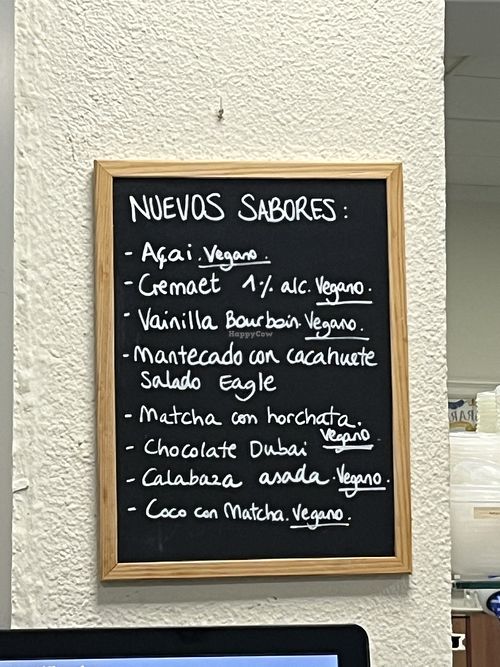 NUEVOS SABORES:
- Açai. Vegano.
- Cremaet 1% alc. Vegano.
- Vainilla Bourboin. Vegano.
HappyCow
- Mantecado con cacahuete
salado Eagle
- Matcha con horchata.
Vegano.
- Chocolate Dubai
- Calabaza asada. Vegano.
- Coco con Matcha. Vegano.